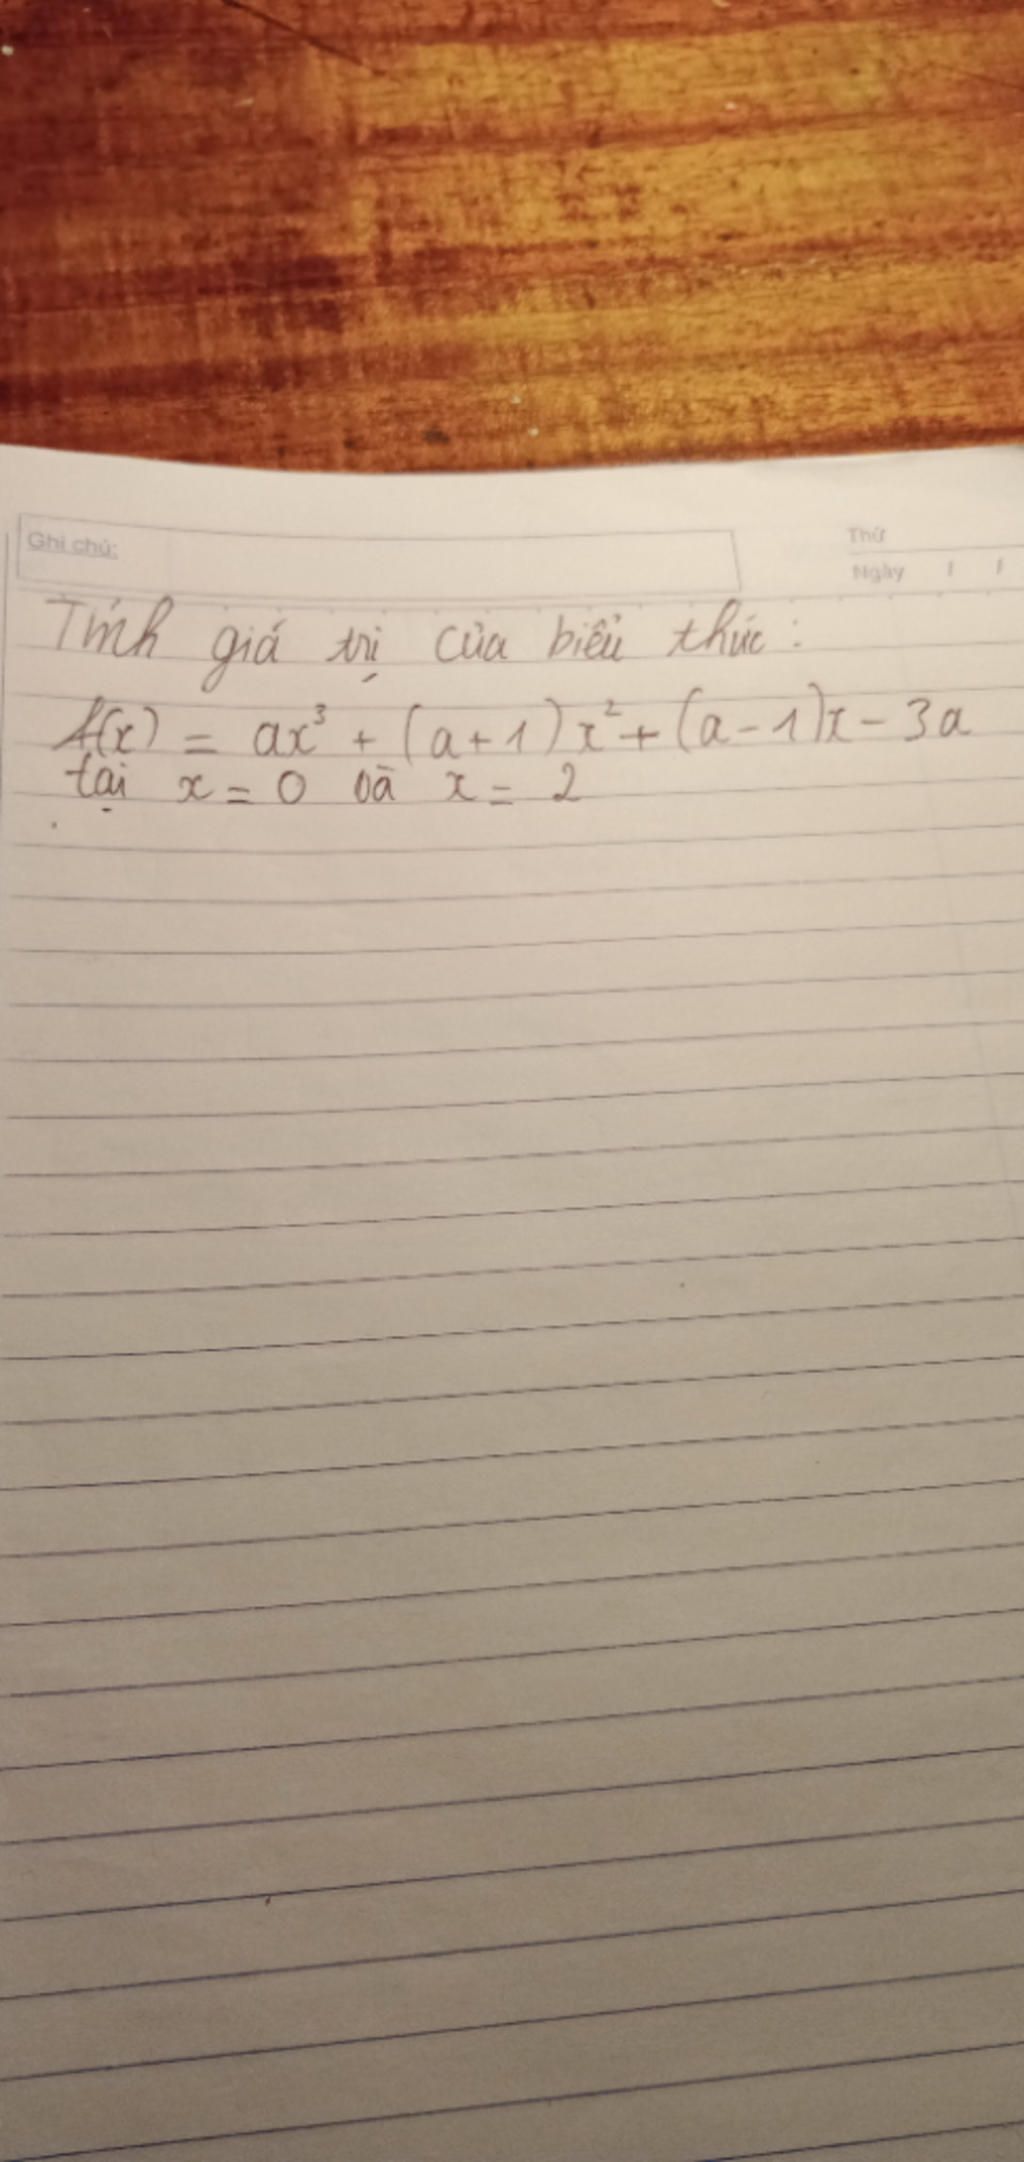 Ghi chú:
Thứ
Ngày / /
Tính giá trị của biểu thức:
f(x) = ax³ + (a+1)x² + (a-1)x - 3a
tại x = 0 và x = 2